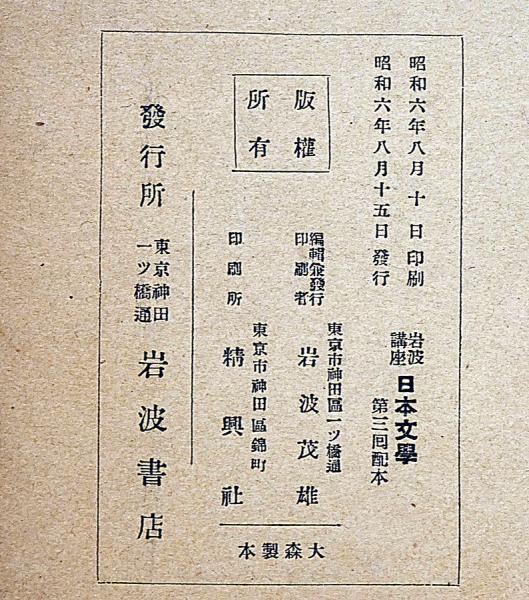 昭和六年八月十日印刷
昭和六年八月十五日發行
岩波
講座
日本文學
第三囘配本
版權
所有
編輯兼發行
印刷者
東京市神田區一ツ橋通
岩波茂雄
印刷所
東京市神田區錦町
精興社
大森製本
發行所
東京神田
一ツ橋通
岩波書店